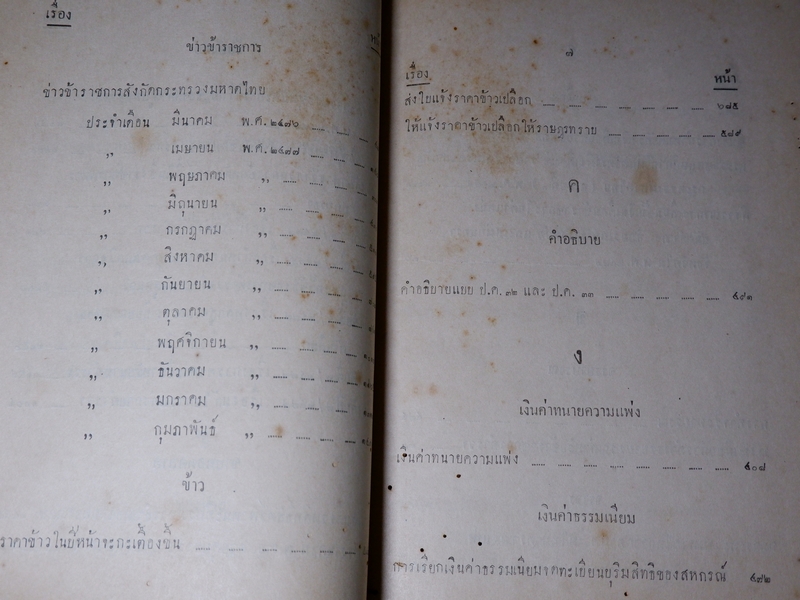 เรื่อง
ข่าวข้าราชการ
ข่าวข้าราชการสังกัดกระทรวงมหาดไทย
ประจำเดือน มีนาคม พ.ศ. ๒๔๗๖ ..... .....
,, เมษายน พ.ศ. ๒๔๗๗ ..... .....
,, พฤษภาคม ,, ..... ..... .....
,, มิถุนายน ,, ..... ..... .....
,, กรกฎาคม ,, ..... ..... .....
,, สิงหาคม ,, ..... ..... .....
,, กันยายน ,, ..... ..... .....
,, ตุลาคม ,, ..... ..... .....
,, พฤศจิกายน ,, ..... ..... .....
,, ธันวาคม ,, ..... ..... .....
,, มกราคม ,, ..... ..... .....
,, กุมภาพันธ์ ,, ..... ..... .....
ข้าว
ราคาข้าวในยี่หน้าจะกะเตื้องขึ้น ..... ..... ..... .....
๗
เรื่อง หน้า
ส่งใบแจ้งราคาข้าวเปลือก ..... ..... ..... ..... ..... ๖๘๕
ให้แจ้งราคาข้าวเปลือกให้ราษฎรทราย ..... ..... ..... ..... ๕๘๙
ค
คำอธิบาย
คำอธิบายแบบ ป.ค. ๓๒ และ ป.ค. ๓๓ ..... ..... ..... ..... ..... ๔๙๑
ง
เงินค่าทนายความแพ่ง
เงินค่าทนายความแพ่ง ..... ..... ..... ..... ..... ..... ..... ๔๐๘
เงินค่าธรรมเนียม
การเรียกเงินค่าธรรมเนียมจดทะเบียนบุริมสิทธิของสหกรณ์ ๔๗๒